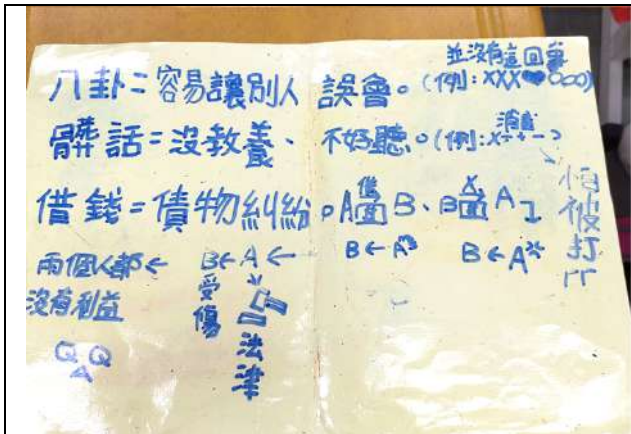 並沒有這回事
八卦=容易讓別人 誤會。(例:XXX❤OOO)
消音
髒話=沒教養、 不好聽。(例:X÷+-)
借錢=債物糾紛。A借B、B A
怕被打
B←A B←A
兩個人都← B←A←
沒有利益 受傷
法律
QAQ